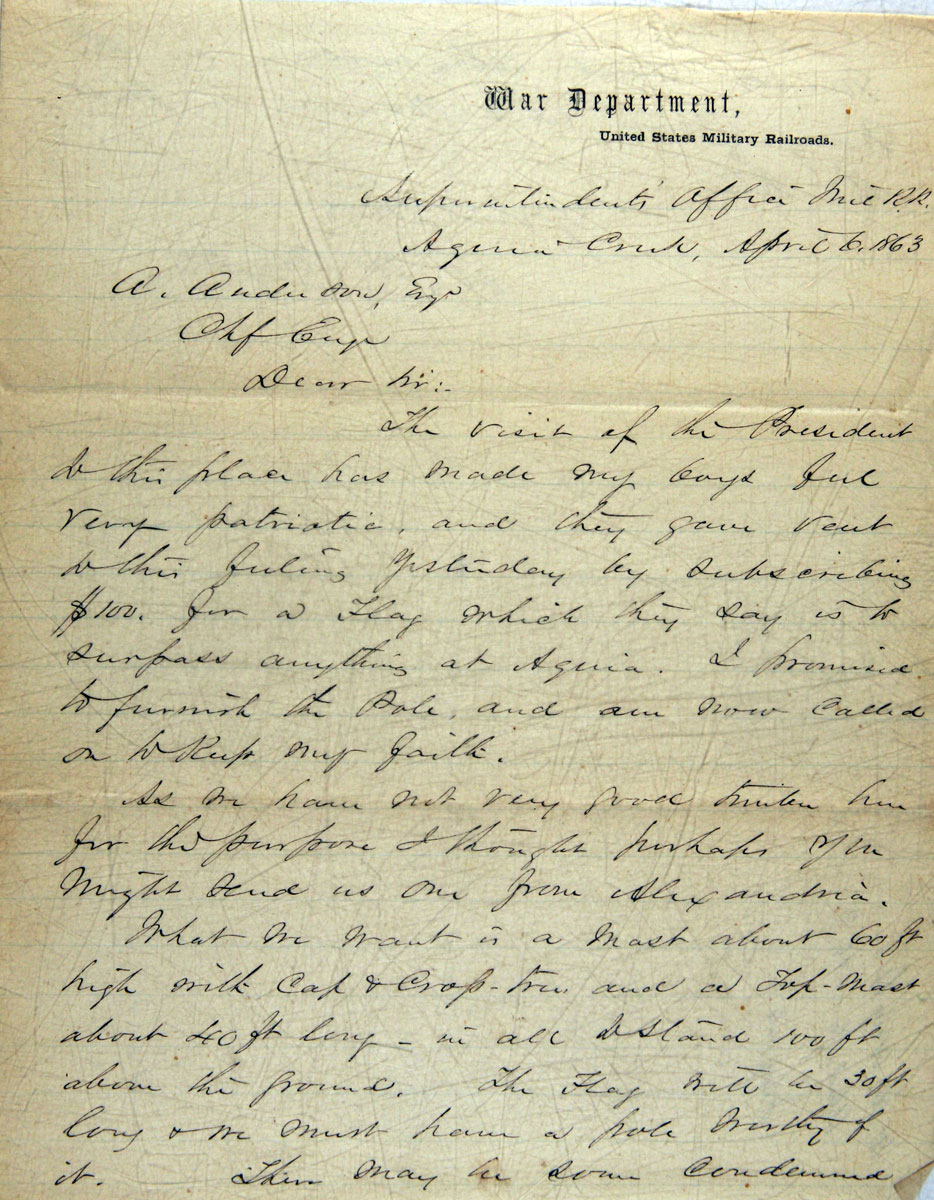 War Department,
United States Military Railroads.
Superintendents Office Mil R.R.
Aquia Creek, April 6. 1863
A. Anderson, Esqr
Chf Engr
Dear Sir:
The visit of the President
to this place has made my boys feel
very patriotic, and they gave vent
to this feeling yesterday by subscribing
$100. for a Flag which they say is to
surpass anything at Aquia. I promised
to furnish the Pole, and am now called
on to Keep my faith.
As we have not very good timber here
for the purpose I thought perhaps you
might send us one from Alexandria.
What we want is a Mast about 60 ft
high with Cap & Cross-trees and a Top-Mast
about 40 ft long - in all to stand 100 ft
above the ground. The Flag will be 30 ft
long & we must have a pole worthy of
it. There may be some Condemned